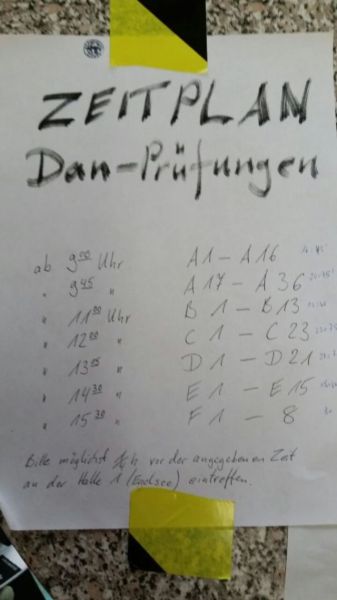 ZEITPLAN
Dan-Prüfungen
ab 9⁰⁰ Uhr A1 – A16
" 9⁴⁵ " A17 – A36
" 11⁰⁰ Uhr B1 – B13
" 12⁰⁰ " C1 – C23
" 13⁰⁵ " D1 – D21
" 14³⁰ " E1 – E15
" 15³⁰ " F1 – 8
Bitte möglichst h vor der angegebenen Zeit
an der Halle 1 eintreffen.